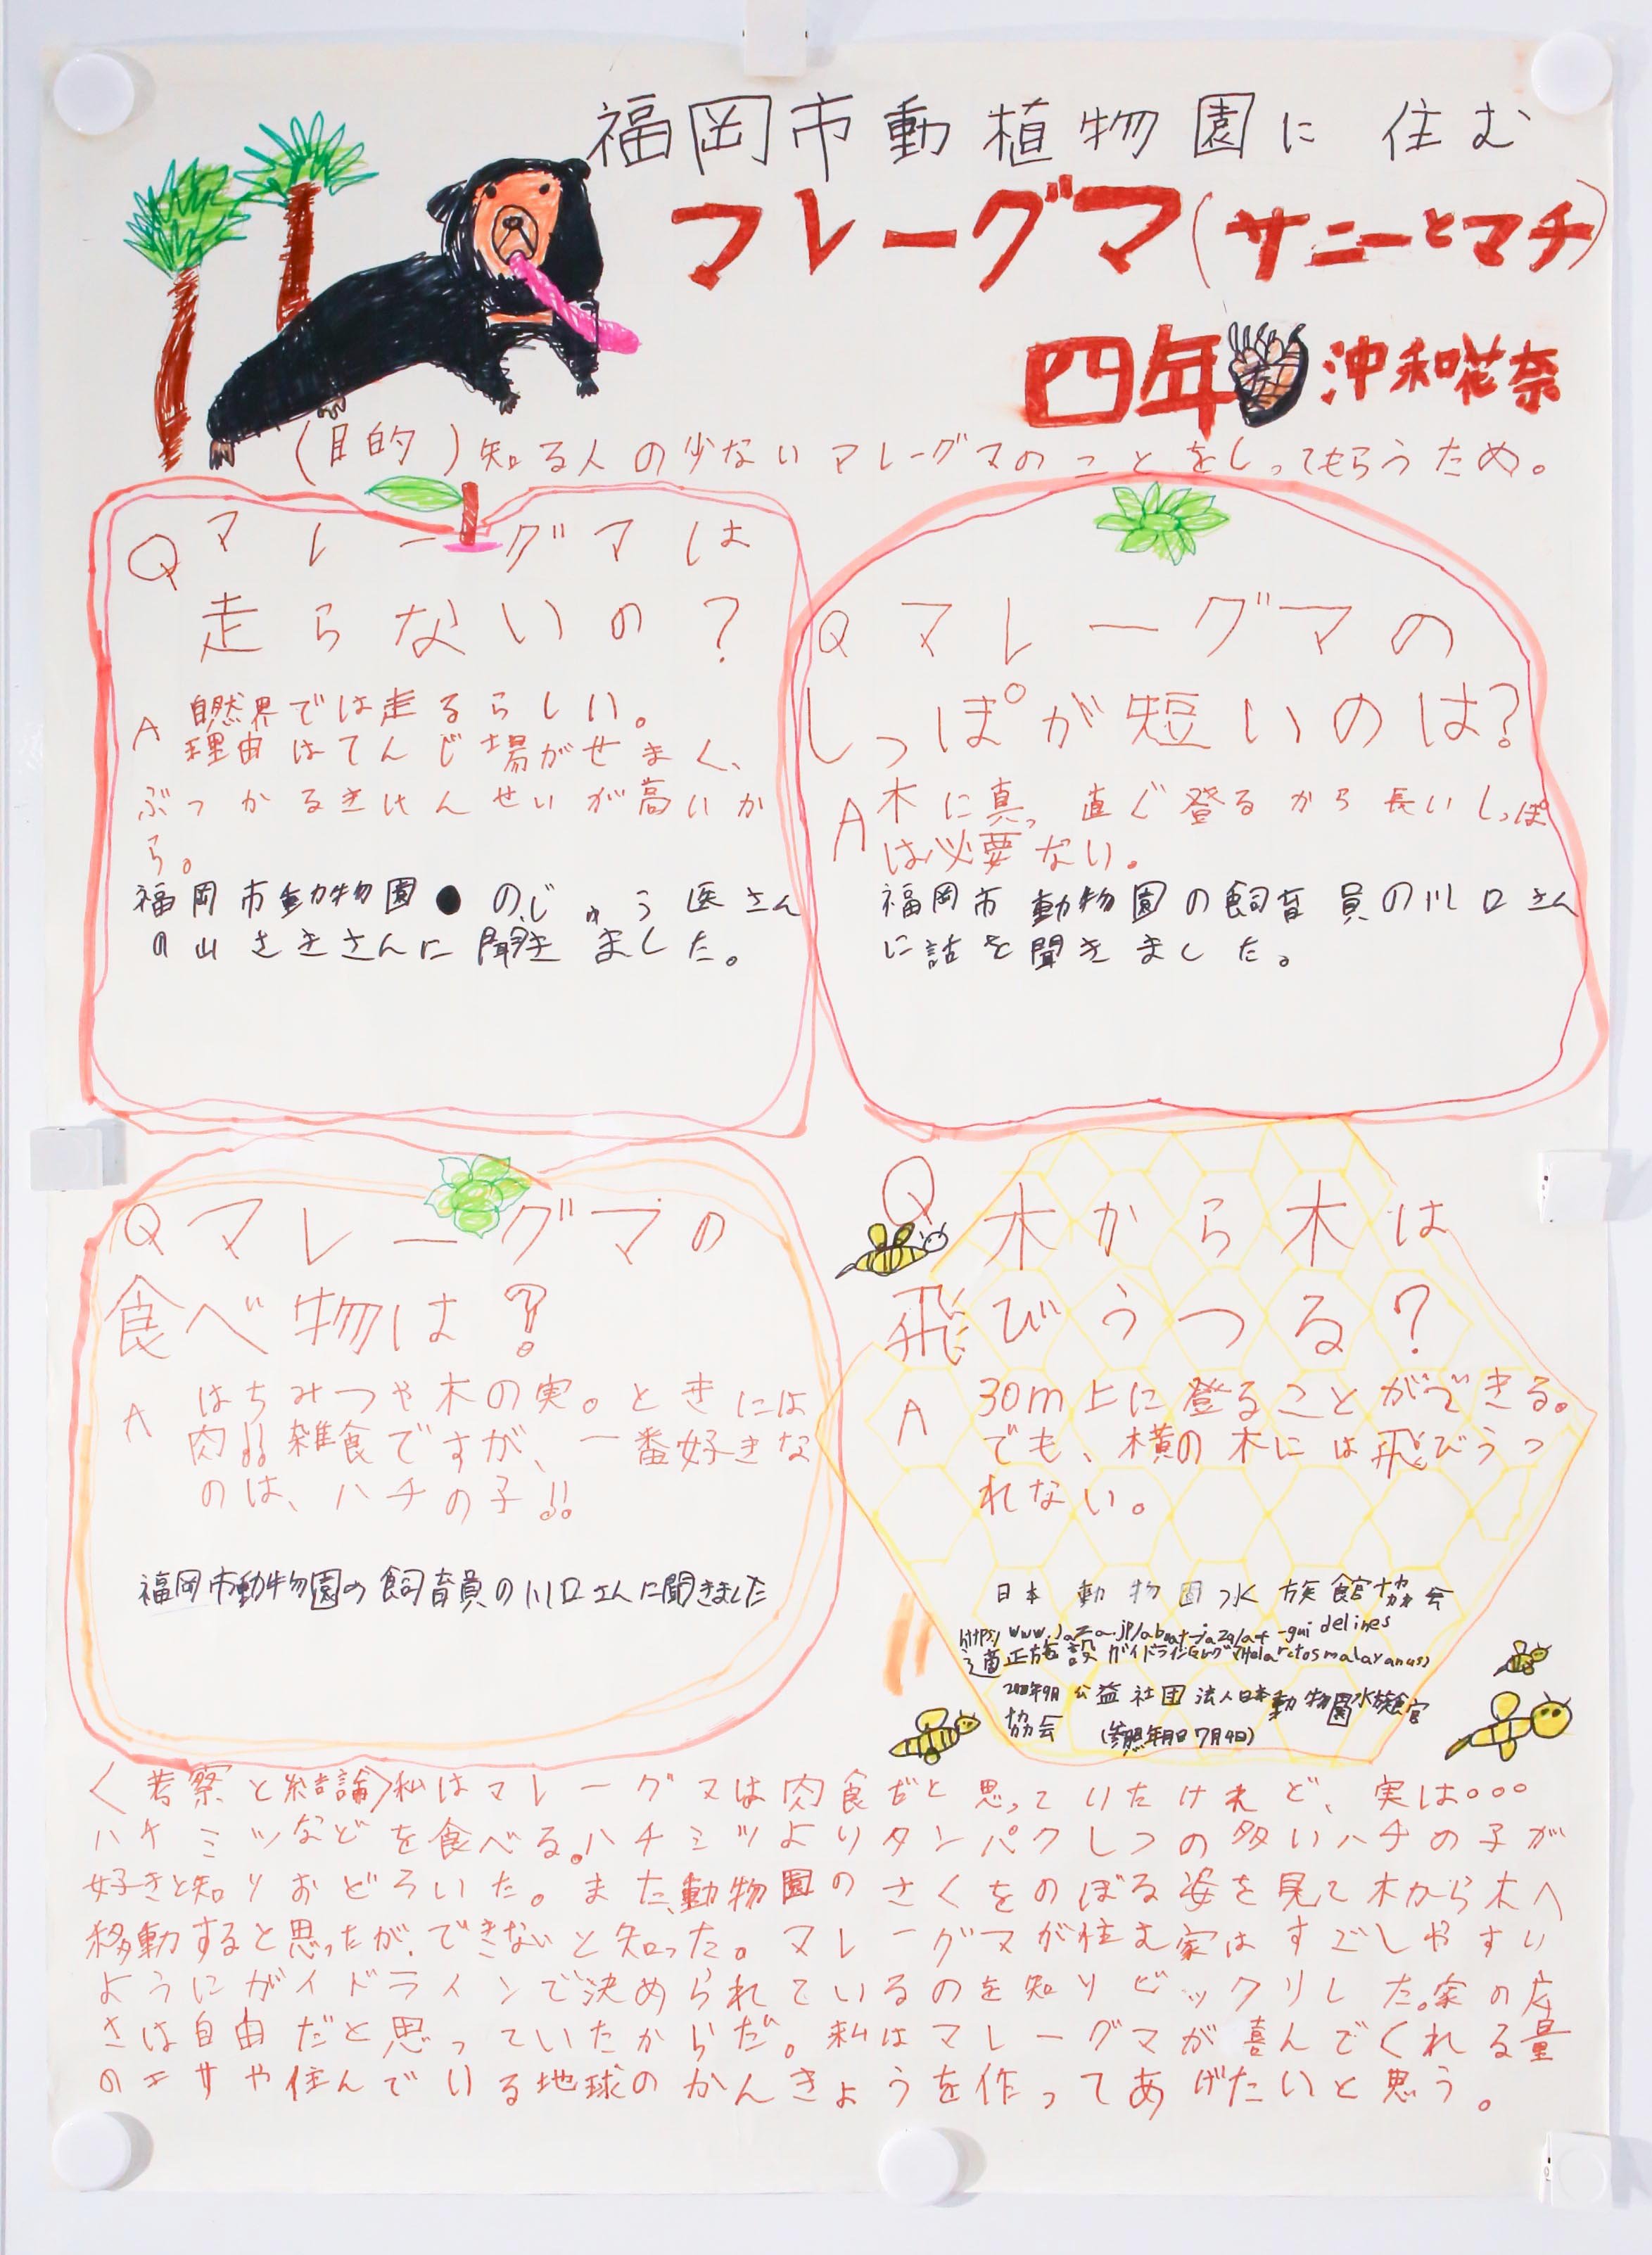 福岡市動植物園に住む
マレーグマ(サニーとマチ)
四年 沖和花奈
(目的)知る人の少ないマレーグマのことをしってもらうため。
Qマレーグマは
走らないの?
A 自然界では走るらしい。
理由はてんじ場がせまく、
ぶつかるきけんせいが高いか
ら。
福岡市動物園のじゅう医さん
の山さきさんに聞きました。
Qマレーグマの
しっぽが短いのは?
A 木に真っ直ぐ登るから長いしっぽ
は必要ない。
福岡市動物園の飼育員の川口さん
に話を聞きました。
Qマレーグマの
食べ物は?
A はちみつや木の実。ときには
肉!!雑食ですが、一番好きな
のは、ハチの子!!
福岡市動物園の飼育員の川口さんに聞きました
Q 木から木は
飛びうつる?
A 30m上に登ることができる。
でも、横の木には飛びうつ
れない。
日本動物園水族館協会
https://www.jaza.jp/about-jaza/af-guidelines
適正施設ガイドライン(マレーグマHelarctos malayanus)
9月 公益社団法人日本動物園水族館
協会 (参照年月日7月4日)
<考察と結論>私はマレーグマは肉食だと思っていたけれど、実は。。。
ハチミツなどを食べる。ハチミツよりタンパクしつの多いハチの子が
好きと知りおどろいた。また、動物園のさくをのぼる姿を見て木から木へ
移動すると思ったが、できないと知った。マレーグマが住む家はすごしやすい
ようにガイドラインで決められているのを知りビックリした。家の広
さは自由だと思っていたからだ。私はマレーグマが喜んでくれる量
のエサや住んでいる地球のかんきょうを作ってあげたいと思う。